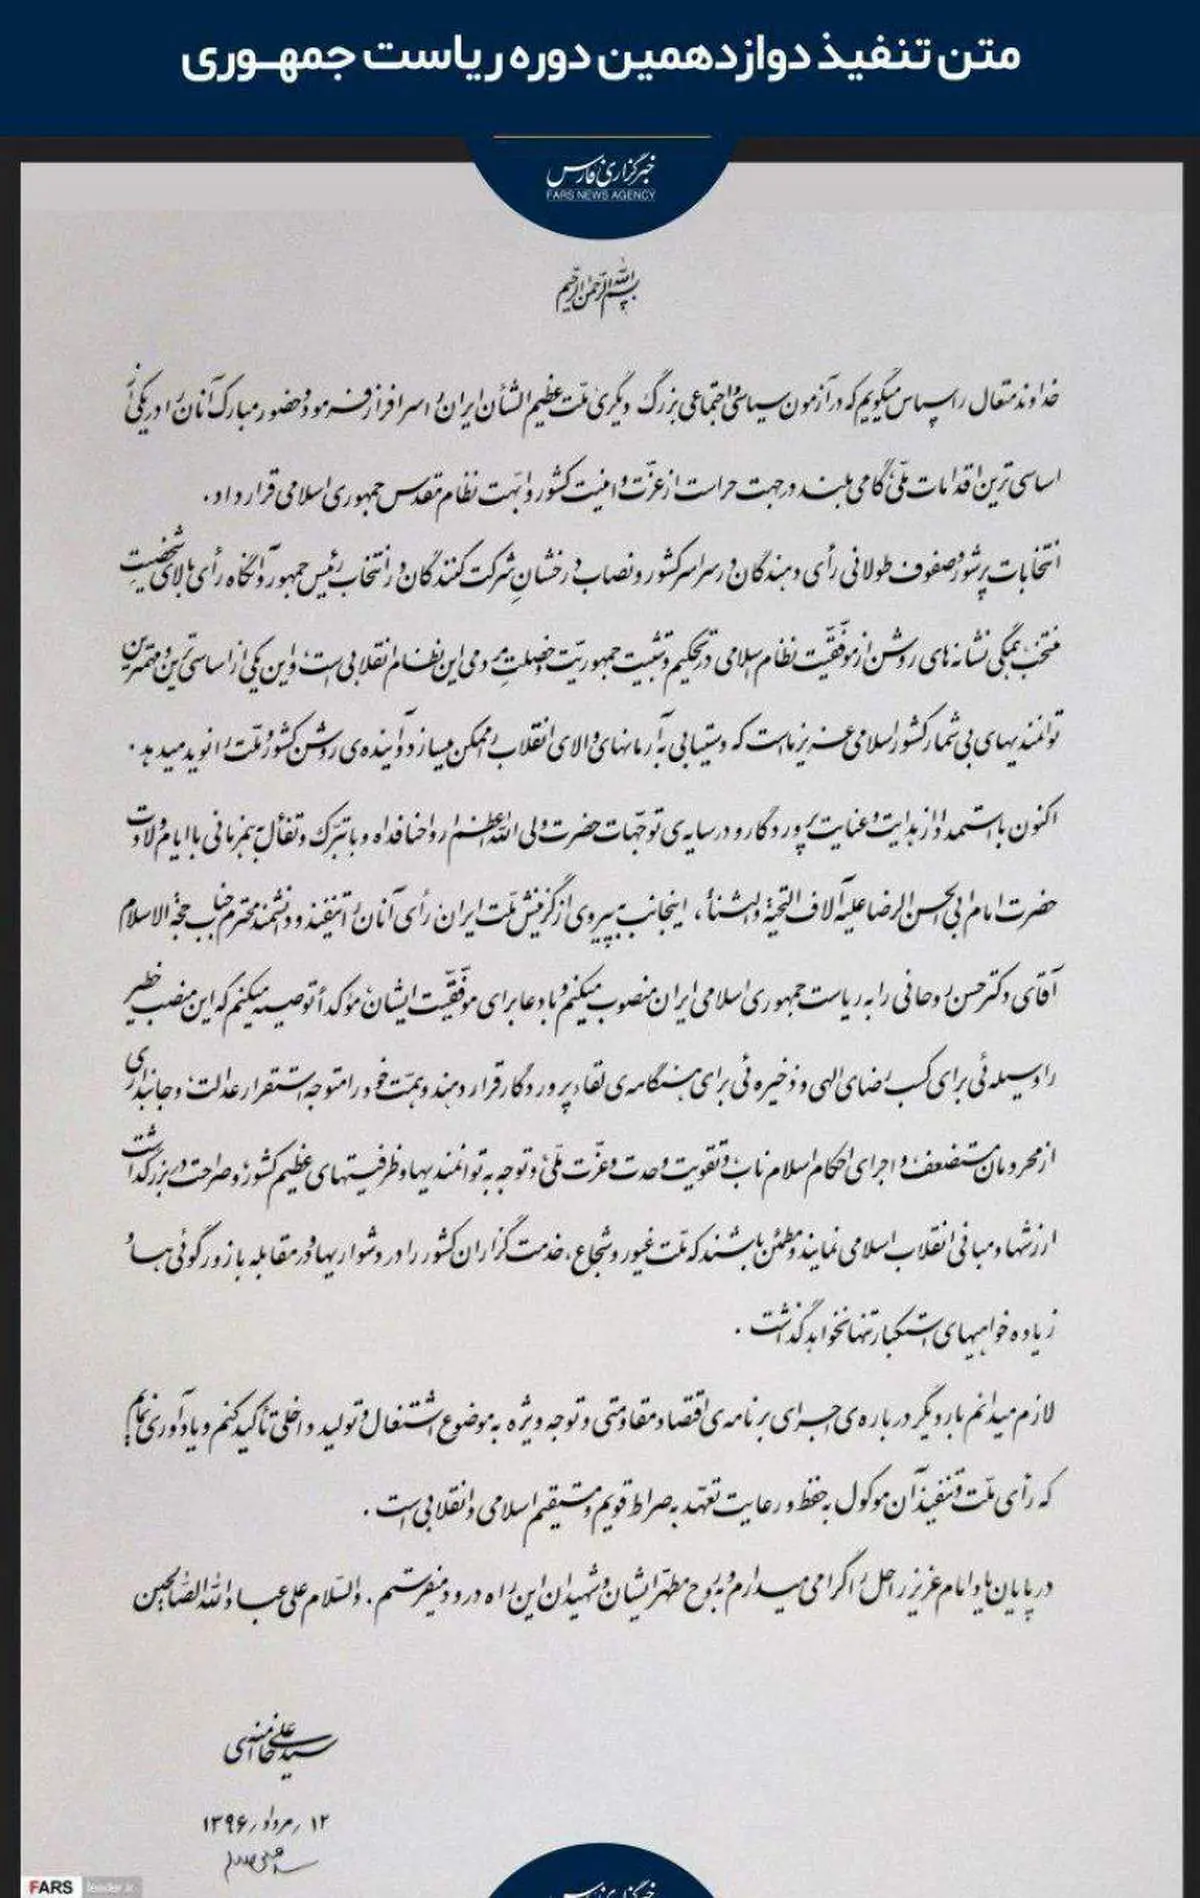 متن تنفیذ دوازدهمین دوره ریاست جمهوری
خبرگزاری فارس
FARS NEWS AGENCY
بسم الله الرحمن الرحیم
خداوند متعال را سپاس میگویم که در آزمون سیاسی و اجتماعی بزرگ دیگری ملت عظیم الشأن ایران را سرافراز فرمود و حضور مبارک آنان را در یکی از
اساسی ترین اقدامات ملّی، گامی بلند در جهت حراست از عزّت و امنیت کشور و ابهت نظام مقدس جمهوری اسلامی قرار داد.
انتخابات پرشور و صفوف طولانی رأی دهندگان در سراسر کشور و نصاب درخشانِ شرکت کنندگان در انتخاب رئیس جمهور و آنگاه رأی بالای شخصیت
منتخب، همگی نشانه های روشن از موفّقیّت نظام اسلامی در تحکیم و تثبیت جمهوریّت و خصلتِ مردمی این نظام انقلابی است، و این یکی از اساسی ترین و مهمترین
توانمندیهای بی شمار کشور اسلامی عزیز ما است که دستیابی به آرمانهای والای انقلاب را ممکن میسازد و آینده ی روشن کشور و ملّت را نوید میدهد.
اکنون با استمداد از هدایت و عنایت پروردگار و در سایه ی توجّهات حضرت ولی الله اعظم ارواحنا فداه و با تبرّک و تفأل به همزمانی با ایام ولادت
حضرت امام ابی الحسن الرضا علیه آلاف التحیة و الثناء، اینجانب به پیروی از گزینش ملّت ایران رأی آنان را تنفیذ و دانشمند محترم جناب حجّة الاسلام
آقای دکتر حسن روحانی را به ریاست جمهوری اسلامی ایران منصوب میکنم و با دعا برای موفّقیّت ایشان مؤکداً توصیه میکنم که این منصب خطیر
را وسیله ئی برای کسب رضای الهی و ذخیره ئی برای هنگامه ی لقاء پروردگار قرار دهند و همّت خود را متوجه استقرار عدالت، و جانبداری
از محرومان مستضعف، و اجرای احکام اسلام ناب، و تقویت وحدت و عزّت ملّی، و توجه به توانمندیها و ظرفیتهای عظیم کشور، و صراحت در بزرگداشت
ارزشها و مبانی انقلاب اسلامی نمایند و مطمئن باشند که ملّت غیور و شجاع، خدمت گزاران کشور را در دشواریها و در مقابله با زورگوئی ها و
زیاده خواهیهای استکبار تنها نخواهد گذاشت.
لازم میدانم بار دیگر در باره ی اجرای برنامه ی اقتصاد مقاومتی و توجه ویژه به موضوع اشتغال و تولید داخلی تأکید کنم و یادآوری نمایم
که رأی ملّت و تنفیذ آن موکول به حفظ و رعایت تعهّد به صراط قویم و مستقیم اسلامی و انقلابی است.
در پایان یاد امام عزیز راحل را گرامی میدارم و به روح مطهّر ایشان و شهیدان این راه درود میفرستم. والسّلام علی عباد الله الصّالحین
سید علی خامنه ای
۱۲ / مرداد / ۱۳۹۶
FARS
leader.ir
خبرگزاری فارس